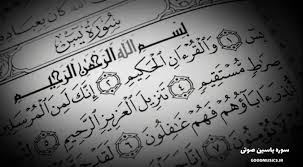 سُورَةُ يسٓ
بِسْمِ ٱللَّهِ ٱلرَّحْمَٰنِ ٱلرَّحِيمِ
يسٓ ١ وَٱلْقُرْءَانِ ٱلْحَكِيمِ ٢ إِنَّكَ لَمِنَ ٱلْمُرْسَلِينَ
صِرَٰطٍ مُّسْتَقِيمٍ ٤ تَنزِيلَ ٱلْعَزِيزِ ٱلرَّحِيمِ ٥
أُنذِرَ ءَابَآؤُهُمْ فَهُمْ غَٰفِلُونَ ٦
سوره یاسین صوتی
GOODMUSICS.IR